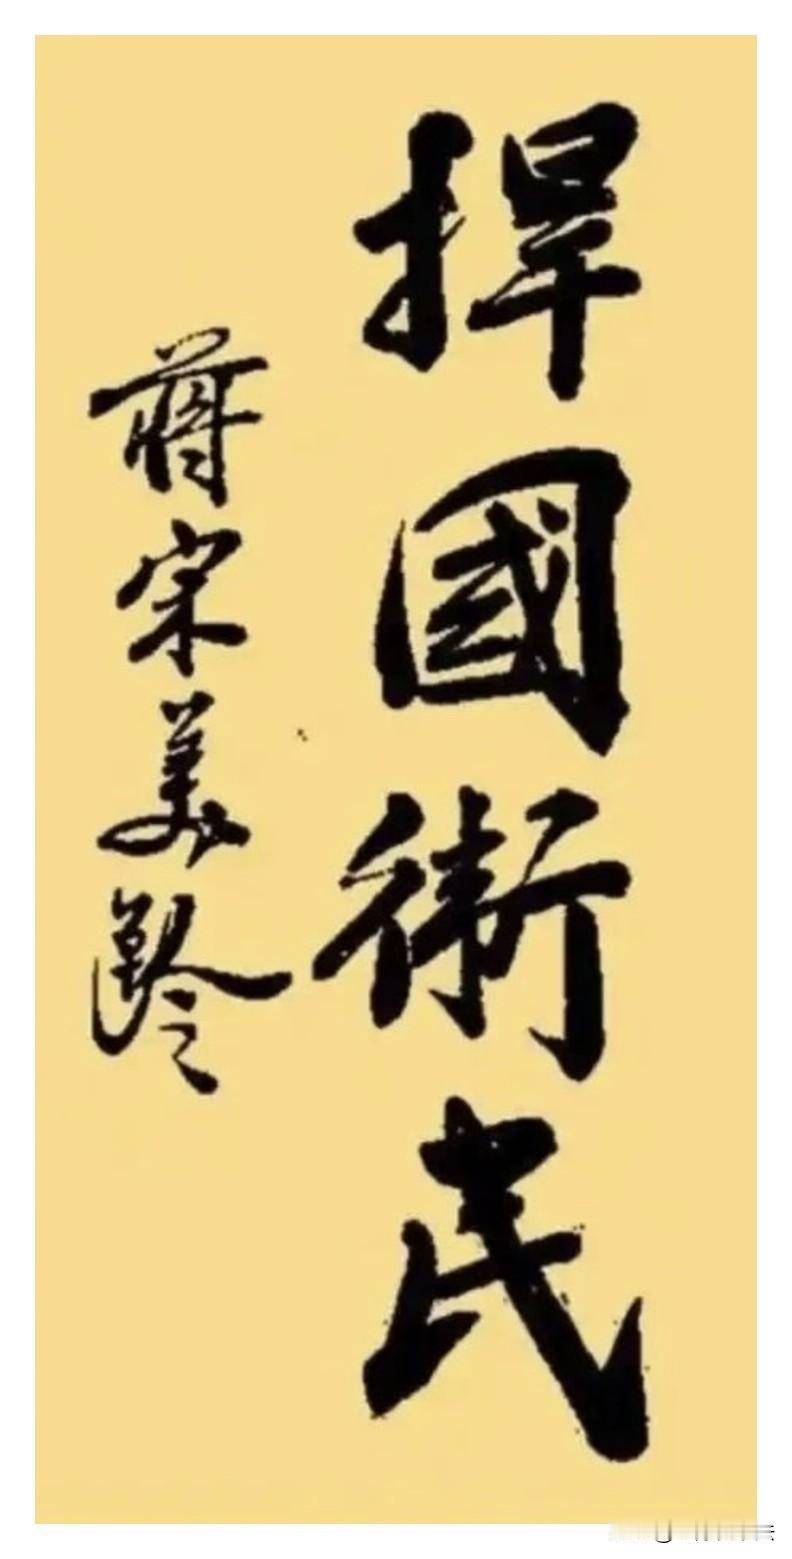 捍國衛民
蔣宋美齡